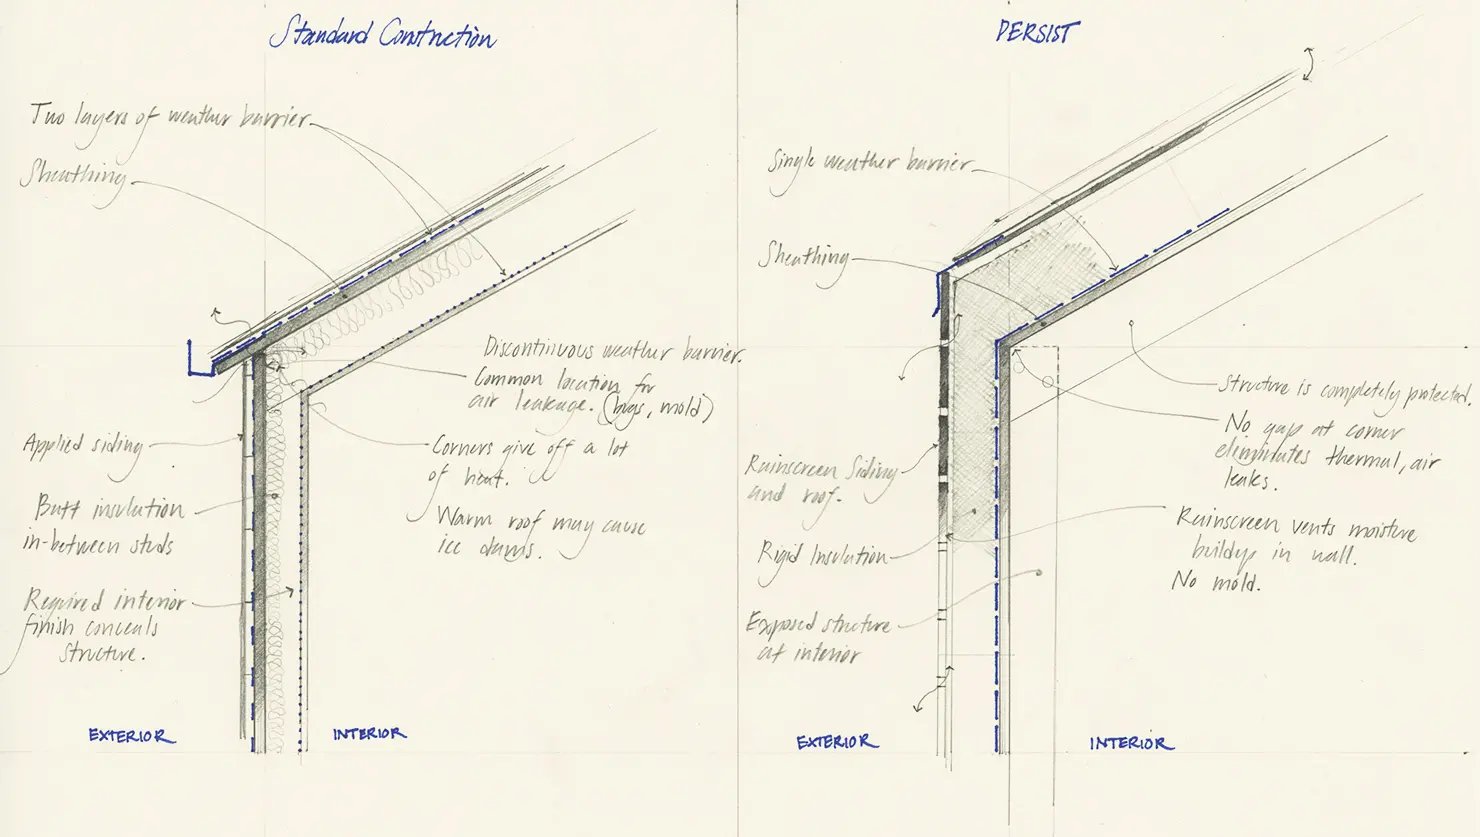 Standard Construction
Two layers of weather barrier
Sheathing
Discontinuous weather barrier.
Common location for
air leakage. (bugs, mold)
Applied siding
Corners give off a lot
of heat.
Batt insulation
in-between studs
Warm roof may cause
ice dams.
Required interior
finish conceals
structure.
EXTERIOR
INTERIOR
PERSIST
Single weather barrier
Sheathing
Structure is completely protected.
No gap at corner
eliminates thermal, air
leaks.
Rainscreen Siding
and roof.
Rainscreen vents moisture
buildup in wall.
No mold.
Rigid Insulation
Exposed structure
at interior
EXTERIOR
INTERIOR